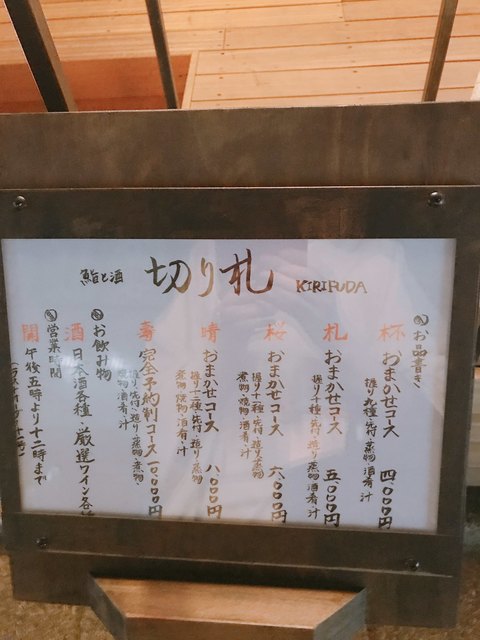 鮨と酒 切り札 KIRIFUDA
お品書き
杯 おまかせコース 四、〇〇〇円
握り九種・先付・蒸物・酒肴・汁
札 おまかせコース 五、〇〇〇円
握り十種・先付・造り・蒸物・酒肴・汁
桜 おまかせコース 六、〇〇〇円
握り十一種・先付・造り・蒸物
煮物・焼物・酒肴・汁
晴 おまかせコース 八、〇〇〇円
握り十二種・先付・造り・蒸物
煮物・焼物・酒肴・汁
寿 完全予約制コース 一〇、〇〇〇円
握り・先付・造り・蒸物・煮物・
焼物・酒肴・汁
お飲み物
酒 日本酒各種・厳選ワイン各種
営業時間
開 午後五時より十二時まで